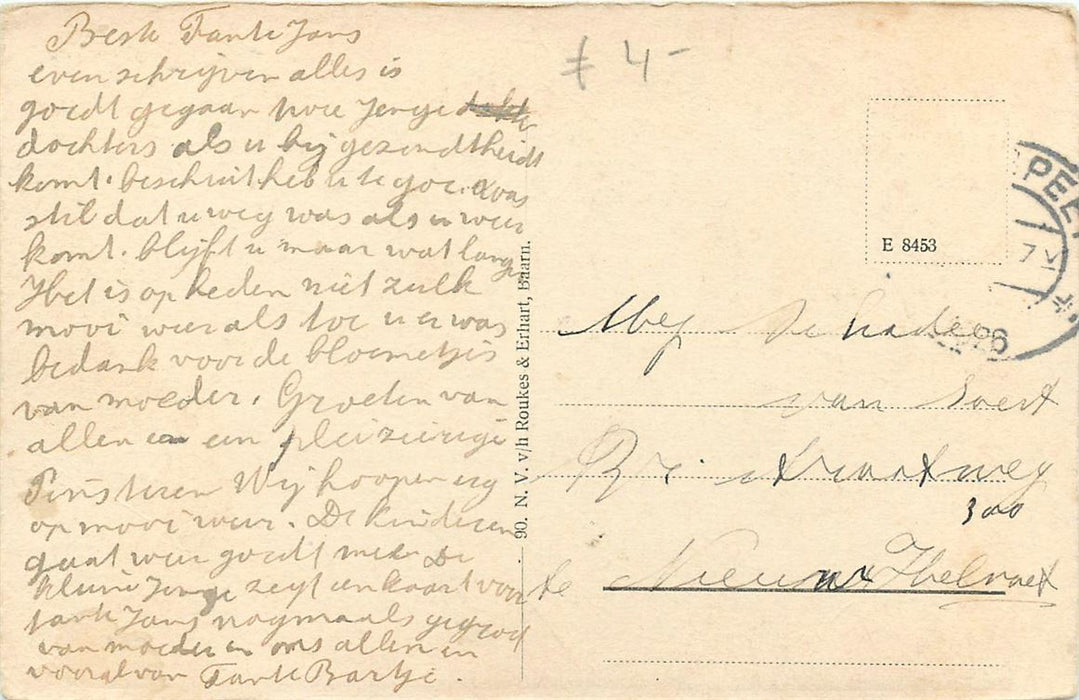 Beste Tante Jans
even schrijven alles is
goedt gegaan hoor Jenge
dochters als u bij gezondtheidt
komt. beschuit heb u te goe. was
stil dat u weg was als u weer
komt. blijft u maar wat lang
Het is op heden niet zulk
mooi weer als toe u er was
bedank voor de bloemetjes
van moeder. Groeten van
allen en een pleizierige
Pinsteren Wij hoopen erg
op mooi weer. De kinderen
gaat weer goedt mee De
kleine Jenge zegt en kaart voor
tante Jans nogmaals gegroet
van moeder en ons allen en
vooral van Tante Bartje.
90. N. V. v/h Roukes & Erhart, Baarn.
£ 4-
E 8453
PEE
7
Mej Schade
van Soest
Rijks straatweg
300
te Nieuw Helvoet